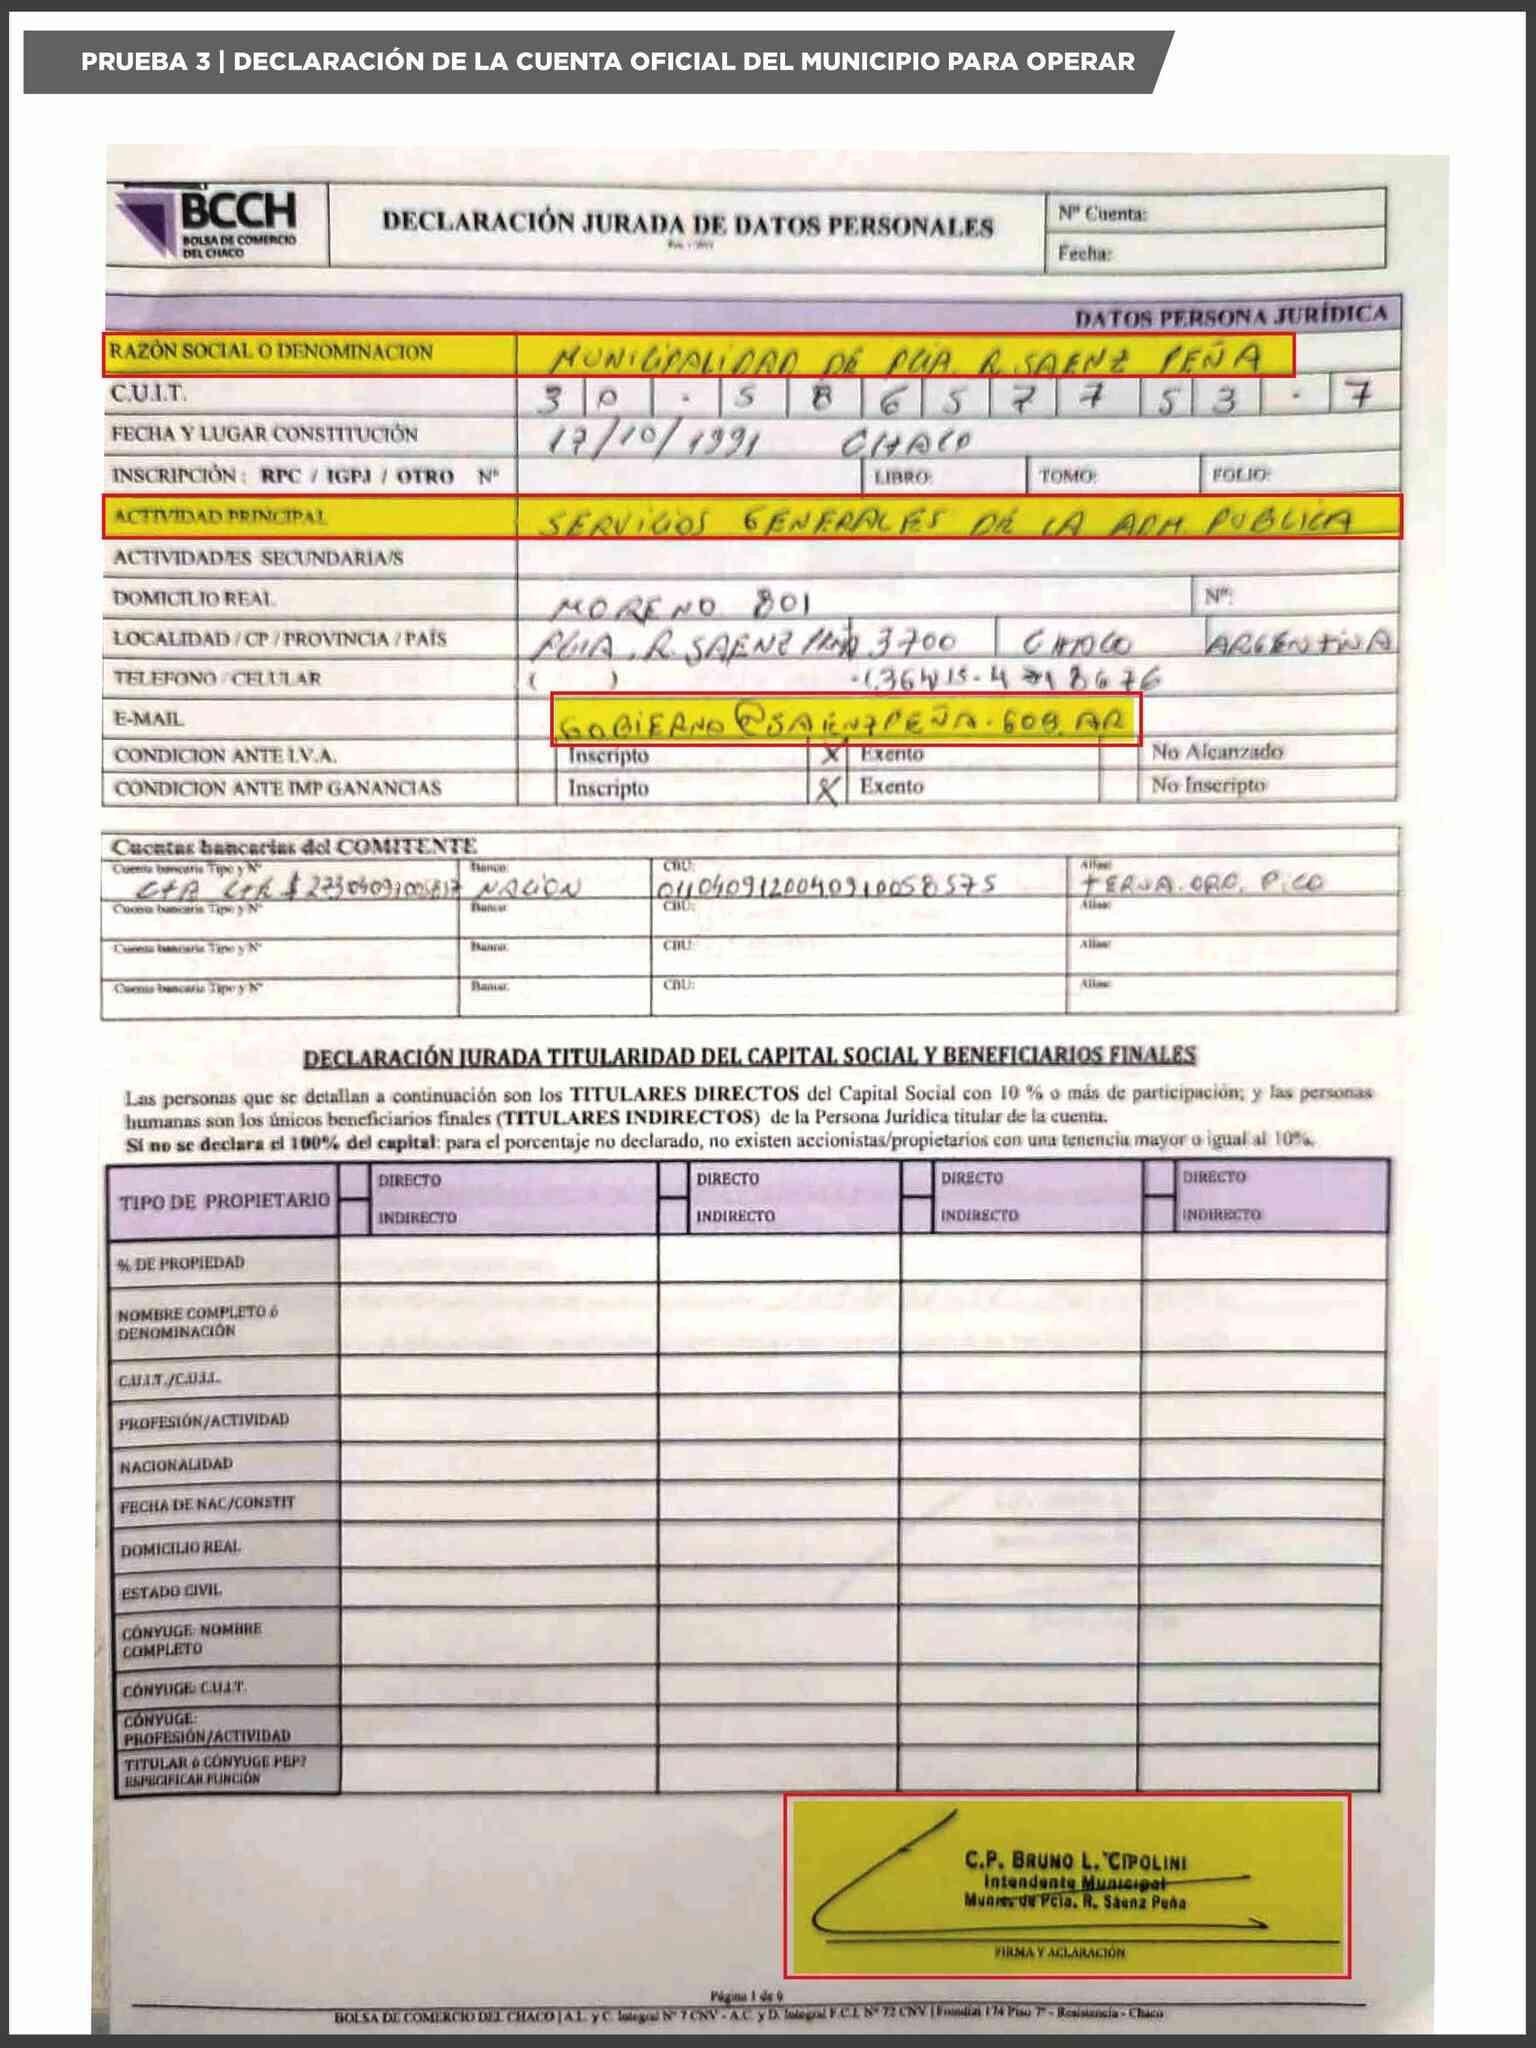 PRUEBA 3 | DECLARACIÓN DE LA CUENTA OFICIAL DEL MUNICIPIO PARA OPERAR
BCCH
BOLSA DE COMERCIO
DEL CHACO
DECLARACIÓN JURADA DE DATOS PERSONALES
Nº Cuenta:
Fecha:
DATOS PERSONA JURÍDICA
RAZÓN SOCIAL O DENOMINACION MUNICIPALIDAD DE PCIA. R. SAENZ PEÑA
C.U.I.T. 30-58657753-7
FECHA Y LUGAR CONSTITUCIÓN 17/10/1991 CHACO
INSCRIPCIÓN: RPC / IGPJ / OTRO Nº LIBRO: TOMO: FOLIO:
ACTIVIDAD PRINCIPAL SERVICIOS GENERALES DE LA ADM. PUBLICA
ACTIVIDAD/ES SECUNDARIA/S
DOMICILIO REAL MORENO 801 Nº:
LOCALIDAD / CP / PROVINCIA / PAÍS PCIA. R. SAENZ PEÑA 3700 CHACO ARGENTINA
TELEFONO / CELULAR ( )
E-MAIL GOBIERNO@SAENZPEÑA.GOB.AR
CONDICION ANTE I.V.A. Inscripto X Exento No Alcanzado
CONDICION ANTE IMP GANANCIAS Inscripto X Exento No Inscripto
Cuentas bancarias del COMITENTE
Cuenta bancaria Tipo y Nº Banco: CBU: Alias:
NACION
Cuenta bancaria Tipo y Nº Banco: CBU: Alias:
Cuenta bancaria Tipo y Nº Banco: CBU: Alias:
Cuenta bancaria Tipo y Nº Banco: CBU: Alias:
DECLARACIÓN JURADA TITULARIDAD DEL CAPITAL SOCIAL Y BENEFICIARIOS FINALES
Las personas que se detallan a continuación son los TITULARES DIRECTOS del Capital Social con 10 % o más de participación; y las personas
humanas son los únicos beneficiarios finales (TITULARES INDIRECTOS) de la Persona Jurídica titular de la cuenta.
Si no se declara el 100% del capital: para el porcentaje no declarado, no existen accionistas/propietarios con una tenencia mayor o igual al 10%.
TIPO DE PROPIETARIO
DIRECTO DIRECTO DIRECTO DIRECTO
INDIRECTO INDIRECTO INDIRECTO INDIRECTO
% DE PROPIEDAD
NOMBRE COMPLETO ó
DENOMINACIÓN
C.U.I.T./C.U.I.L.
PROFESIÓN/ACTIVIDAD
NACIONALIDAD
FECHA DE NAC/CONSTIT
DOMICILIO REAL
ESTADO CIVIL
CÓNYUGE: NOMBRE
COMPLETO
CÓNYUGE: C.U.I.T.
CÓNYUGE:
PROFESIÓN/ACTIVIDAD
TITULAR ó CÓNYUGE PEP?
ESPECIFICAR FUNCIÓN
C.P. BRUNO L. CIPOLINI
Intendente Municipal
Munic. de Pcia. R. Sáenz Peña
FIRMA Y ACLARACIÓN
Página 1 de 9
BOLSA DE COMERCIO DEL CHACO | A.L. y C. Integral Nº 7 CNV - A.C. y D. Integral F.C.I. Nº 72 CNV | Frondizi 174 Piso 7º - Resistencia - Chaco